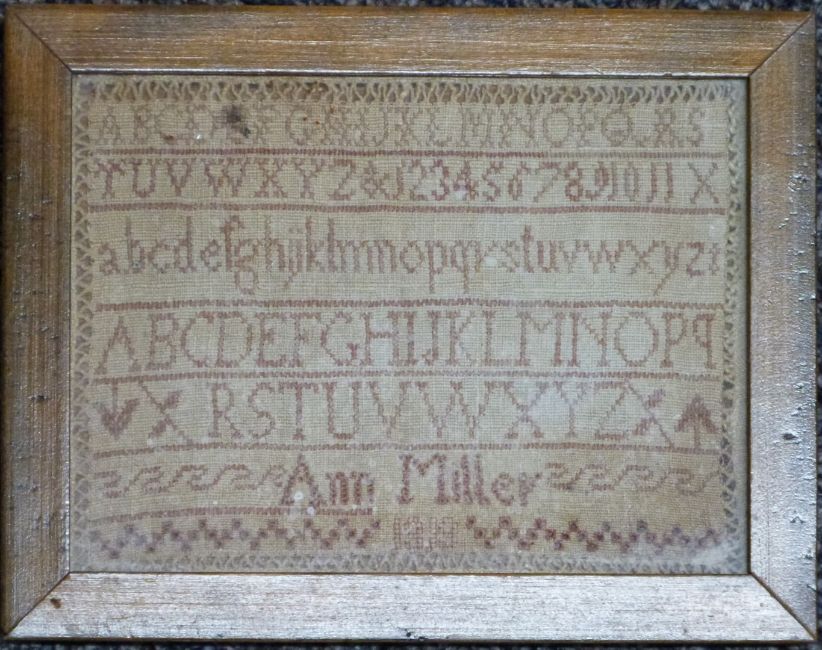 ABCDEFGHIJKLMNOPQRS
TUVWXYZ&1234567891011X
abcdefghijklmnopqrstuvwxyz
ABCDEFGHIJKLMNOPq
RSTUVWXYZ
Ann Miller